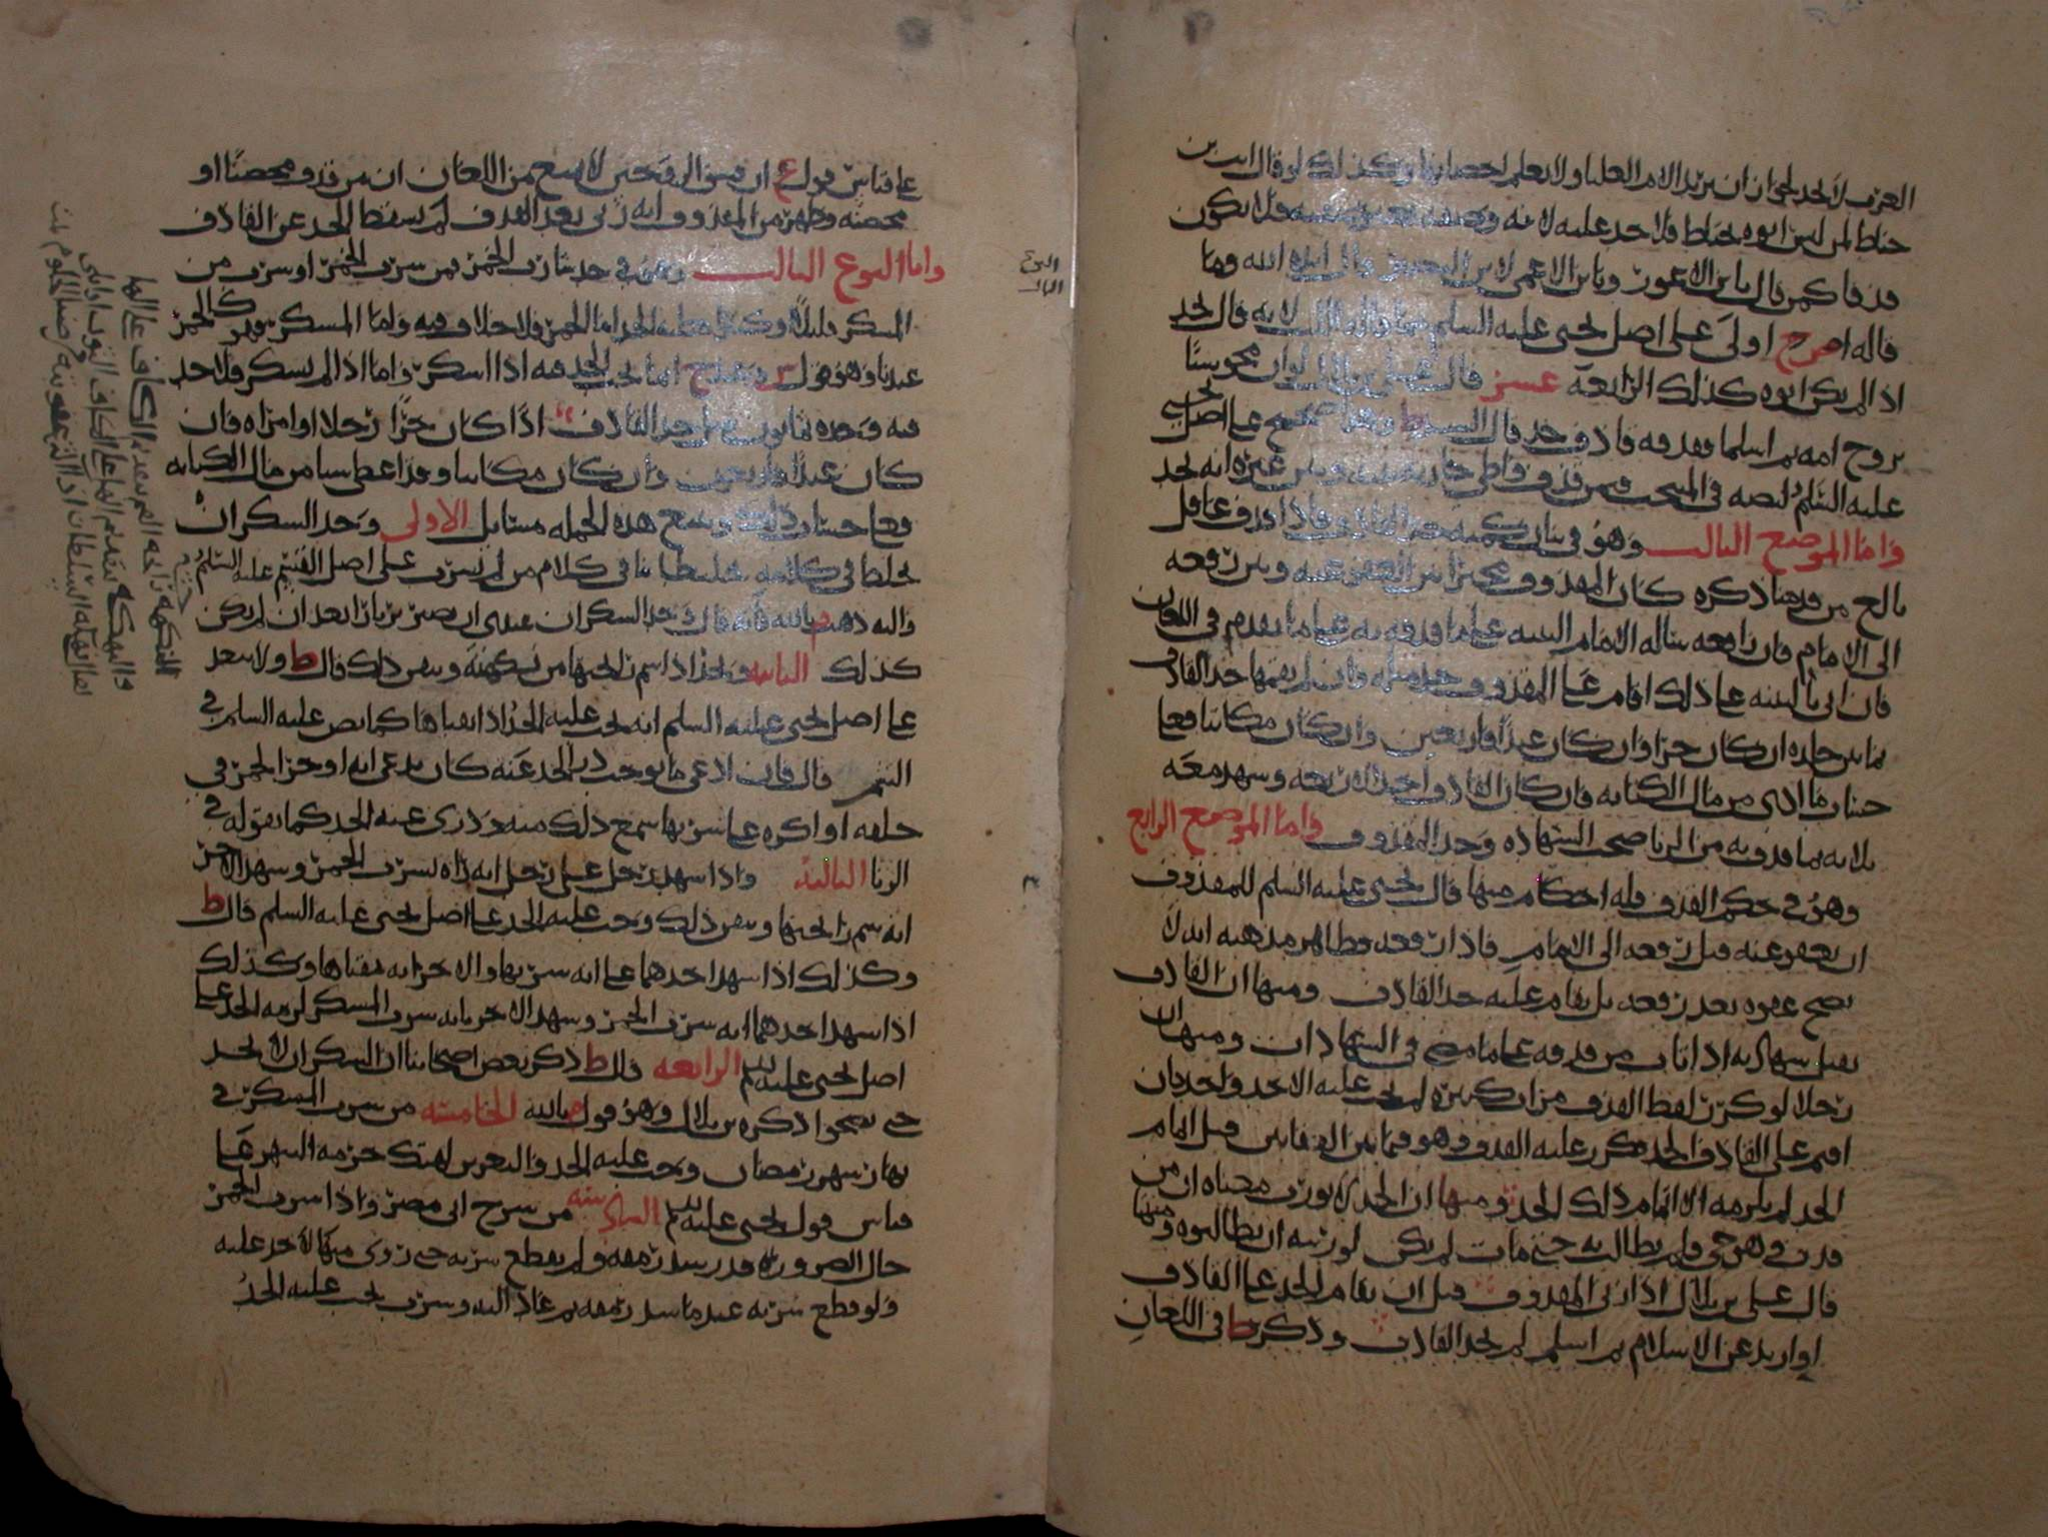 العرب لا يحد لجواز ان يريد الام العليا ولا يعلم احصانها وكذلك لو قال ابن
خياط لمن ليس ابوه خياط فلا حد عليه لانه وصفه فلا يكون
قذفا كمن قال يا بن الاعور ويا بن الاعمى لابن البصير قال ايده الله وما
قاله اصرح اولى على اصل يحيى عليه السلم لانه قال يحد
اذا لم يكن ابوه كذلك الرابعة عشر قال علي بن بلال لو ان مجوسيا
تزوج امه ثم اسلما فقذفه قاذف حد قال السيد ط وهذا صحيح على اصل يحيى
عليه السلم لنصه في المنتخب فيمن قذف واطي جاريته وبين غيره انه يحد
واما الموضع الثالث وهو في بيان كيفية حد القاذف فاذا قذف عاقل
بالغ من قدمنا ذكره كان المقذوف مخيرا بين العفو عنه وبين رفعه
الى الامام فان رافعه ساله الامام البينة على ما قذفه به على ما تقدم في اللعان
فان اتى بالبينة على ذلك اقام على المقذوف حد مثله فان لم يقمها حد القاذف
ثمانين جلدة ان كان حرا وان كان عبدا فاربعين وان كان مكاتبا فعلى
حساب ما ادى من مال الكتابة فان كان القاذف احد الاربعة وشهد معه
ثلاثة بما قذف به من الزنا صحت الشهادة وحد المقذوف واما الموضع الرابع
وهو في حكم القذف فله احكام منها قال يحيى عليه السلم للمقذوف
ان يعفو عنه قبل رفعه الى الامام فاذا رفعه فظاهر مذهبه انه لا
يصح عفوه بعد رفعه بل يقام عليه حد القاذف ومنها ان القاذف
يقبل شهادته اذا تاب من قذفه على ما مضى في الشهادات ومنها ان
رجلا لو كرر لفظ القذف مرارا كثيرة لم يجب عليه الا حد واحد فان
اقيم على القاذف الحد فكرر عليه القذف وهو فيما بين القذفين قبل اتمام
الحد لم يلزمه الا اتمام ذلك الحد ومنها ان الحد لا يورث معناه ان من
قذف وهو حي فلم يطالب به حتى مات لم يكن لورثته ان يطالبوه ومنها
قال علي بن بلال اذا زنى المقذوف قبل ان يقام الحد على القاذف
او ارتد عن الاسلام ثم اسلم لم يحد القاذف وذكر ط في اللعان
على قياس قول ع ان فسق الزوجين لا يمنع من اللعان ان من قذف محصنا او
محصنة وظهر من المقذوف انه زنى بعد القذف لم يسقط الحد عن القاذف
النوع الثالث
واما النوع الثالث وهو في حد شارب الخمر فمن شرب الخمر او شرب من
المسكر قليلا او كثيرا وجب عليه الحد اما الخمر فلا خلاف فيه واما المسكر فهو كالخمر
عندنا وهو قول ش وعند ح انما يجب الحد فيه اذا اسكر فاما اذا لم يسكر فلا حد
فيه وحده ثمانون مثل حد القاذف اذا كان حرا رجلا او امراة فان
كان عبدا فاربعون وان كان مكاتبا وقد اعطى شيا من مال الكتابة
فعلى حساب ذلك ويتبع هذه الجملة مسائل الاولى وحد السكران ان
يخلط في كلامه تخليطا بينا في كلام من لم يشرب على اصل القسم عليه السلم
واليه ذهب م بالله فانه قال وحد السكران عندي ان يصير ثرثارا بعد ان لم يكن
كذلك الثانية ويحد اذا اشم رايحتها من نكهته وتيقن ذلك قال ط ولا يبعد
على اصل يحيى عليه السلم انه يجب عليه الحد اذا تقياها كما نص عليه السلم في
الشم قال فان ادعى ما يوجب درء الحد عنه كان يدعي انه اوجر الخمر في
حلقه او اكره على شربها سمع ذلك منه ودرئ عنه الحد كما نقوله في
الزنا الثالثة واذا شهد رجل على رجل انه راه يشرب الخمر وشهد الاخر
انه شم رايحتها وتيقن ذلك وجب عليه الحد على اصل يحيى عليه السلم قال ط
وكذلك اذا شهد احدهما على انه شربها والاخر انه تقياها وكذلك
اذا شهد احدهما انه شرب الخمر وشهد الاخر بانه شرب المسكر لزمه الحد على
اصل يحيى عليه السلم الرابعة قال ط ذكر بعض اصحابنا ان السكران لا يحد
حتى يصحوا ذكره بن بلال وهو قول م بالله الخامسة من شرب المسكر في
نهار شهر رمضان وجب عليه الحد والتعزير لهتك حرمة الشهر على
قياس قول يحيى عليه السلم السادسة من شرح ابي مضر واذا شرب الخمر
حال الضرورة قدر سد رمقه ولم يقطع شربه حتى روي منها لا حد عليه
ولو قطع شربه عندما سد رمقه ثم عاد اليه وشرب يجب عليه الحد